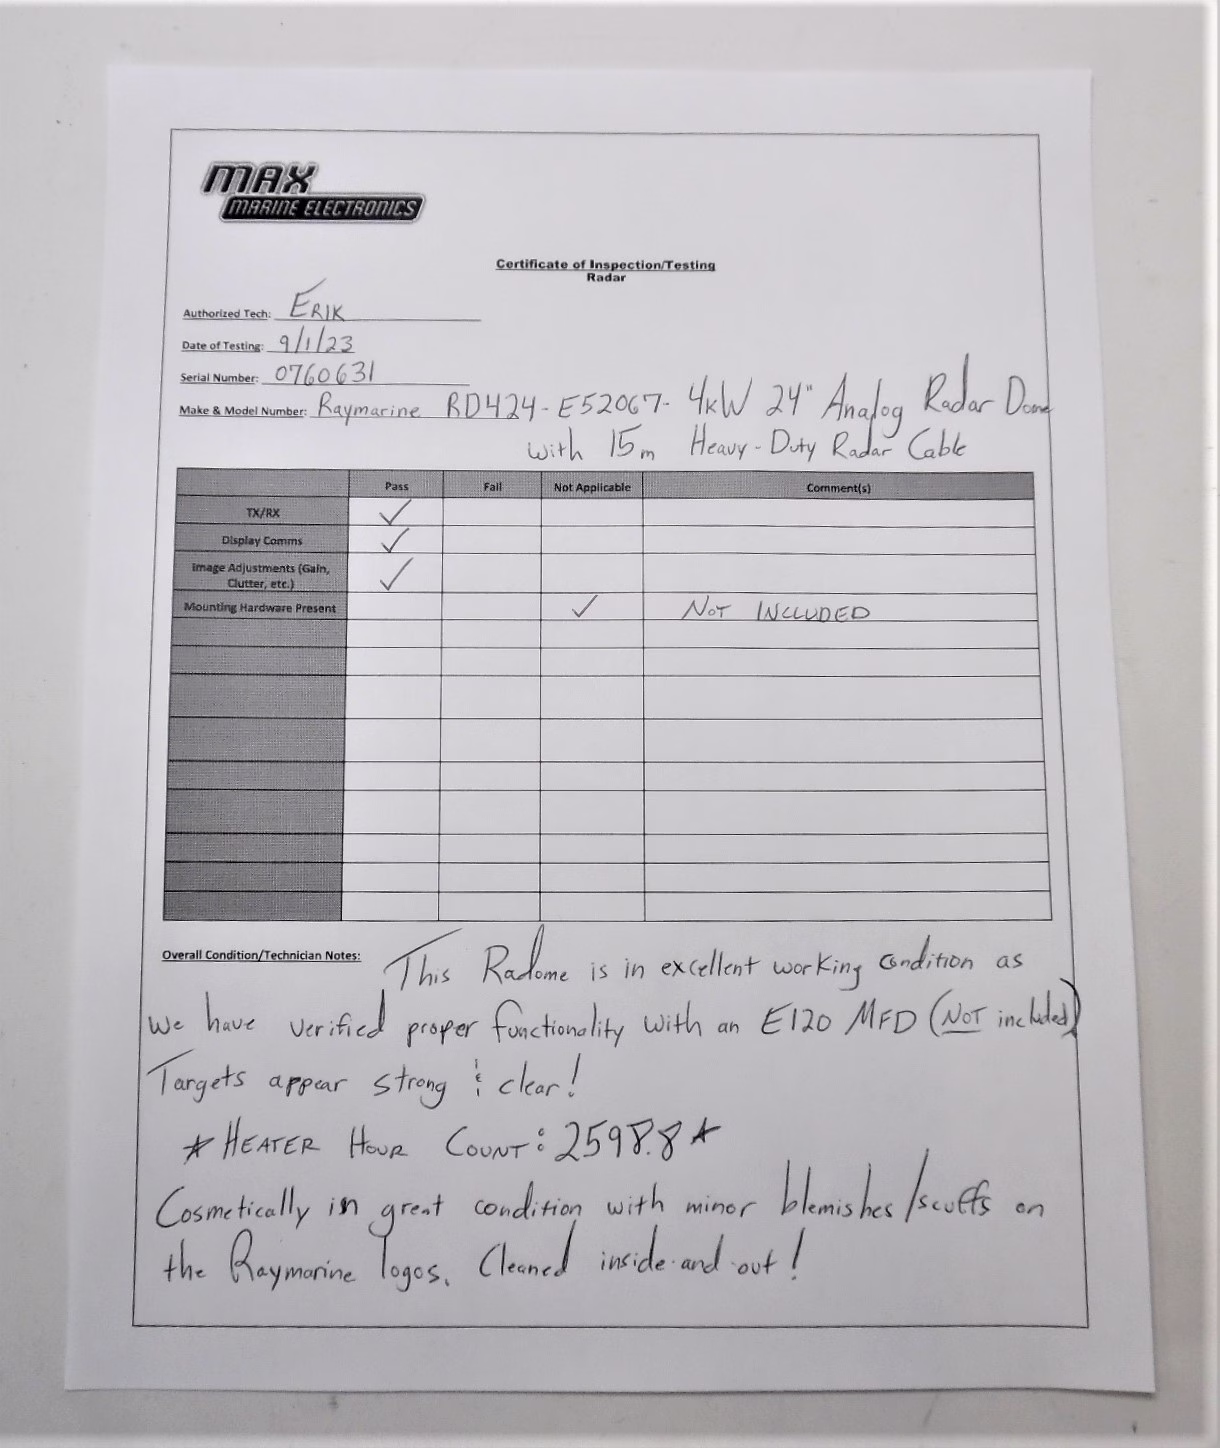 MAX
MARINE ELECTRONICS
Certificate of Inspection/Testing
Radar
Authorized Tech: ERIK
Date of Testing: 9/1/23
Serial Number: 0760631
Make & Model Number: Raymarine RD424-E52067- 4kW 24" Analog Radar Dome
with 15m Heavy-Duty Radar Cable
Pass Fail Not Applicable Comment(s)
TX/RX ✓
Display Comms ✓
Image Adjustments (Gain,
Clutter, etc.) ✓
Mounting Hardware Present ✓ NOT INCLUDED
Overall Condition/Technician Notes: This Radome is in excellent working condition as
we have verified proper functionality with an E120 MFD (NOT included)
Targets appear strong & clear!
* HEATER HOUR COUNT: 2598.8 *
Cosmetically in great condition with minor blemishes/scuffs on
the Raymarine logos. Cleaned inside-and-out!